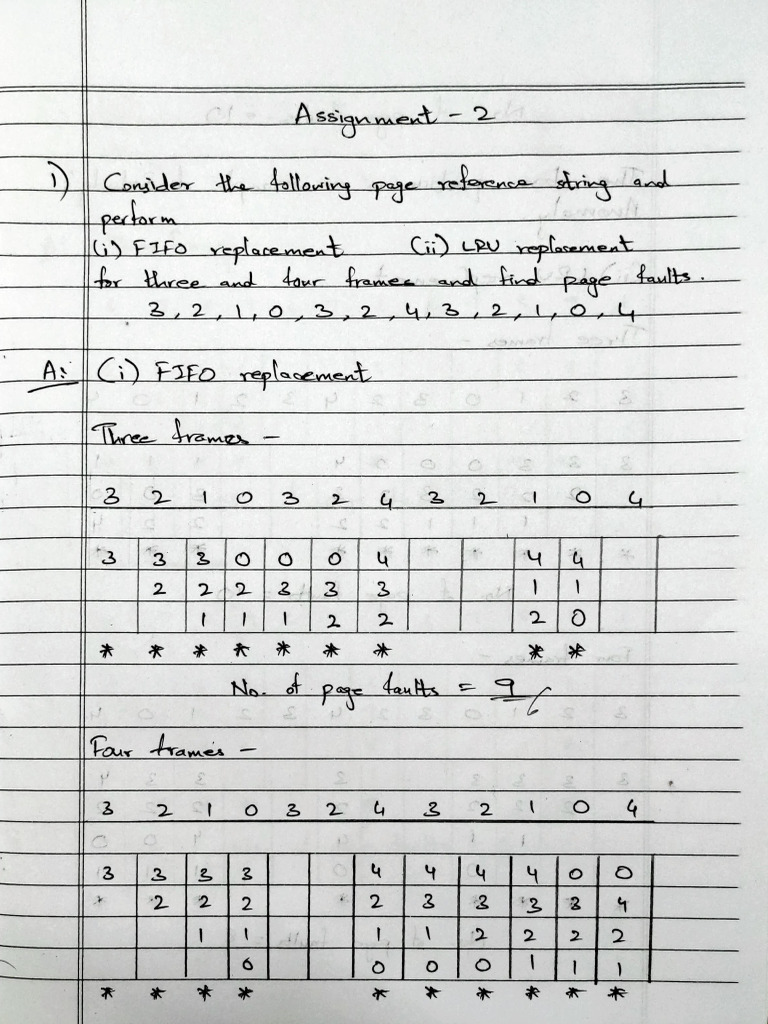 Assignment - 2
1) Consider the following page reference string and
perform
(i) FIFO replacement (ii) LRU replacement
for three and four frames and find page faults.
3, 2, 1, 0, 3, 2, 4, 3, 2, 1, 0, 4
A: (i) FIFO replacement
Three frames -
3 2 1 0 3 2 4 3 2 1 0 4
3 3 3 0 0 0 4 4 4
2 2 2 3 3 3 1 1
1 1 1 2 2 2 0
* * * * * * * * *
No. of page faults = 9
Four frames -
3 2 1 0 3 2 4 3 2 1 0 4
3 3 3 3 4 4 4 4 0 0
2 2 2 2 3 3 3 3 4
1 1 1 1 2 2 2 2
0 0 0 0 1 1 1
* * * * * * * * * *